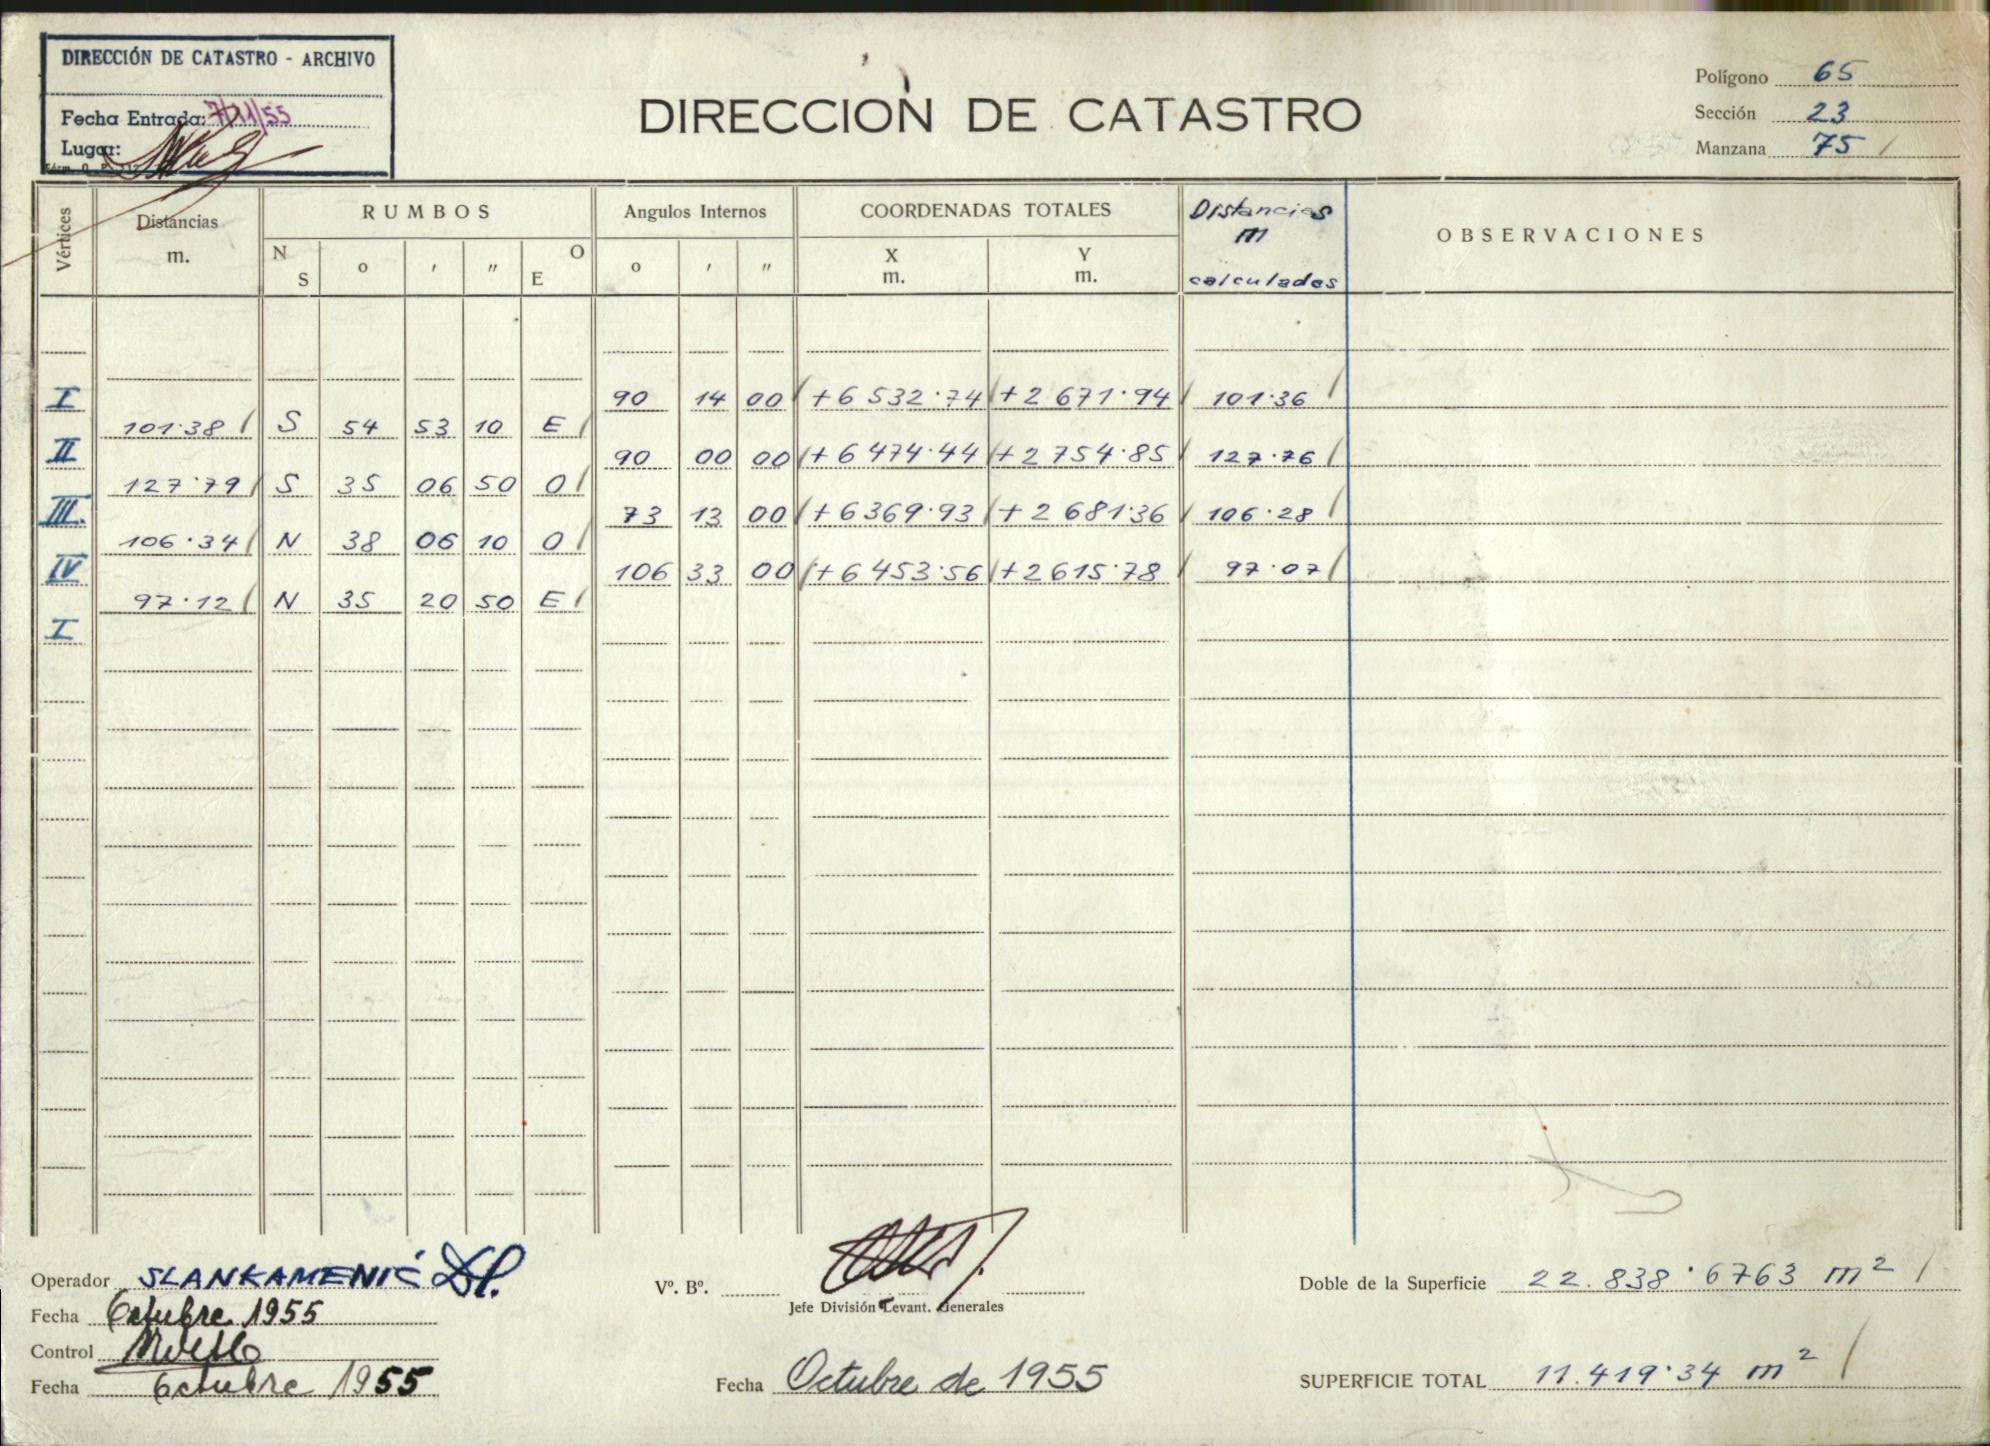 DIRECCIÓN DE CATASTRO - ARCHIVO
Fecha Entrada: 7/11/55
Lugar:
DIRECCION DE CATASTRO
Polígono 65
Sección 23
Manzana 75
Vértices
Distancias m.
RUMBOS
N S o ' " O E
Angulos Internos
o ' "
COORDENADAS TOTALES
X m. Y m.
Distancias m calculadas
OBSERVACIONES
I 90 14 00 +6 532.74 +2 671.94 101.36
101.38 S 54 53 10 E
II 90 00 00 +6 474.44 +2 754.85 127.76
127.79 S 35 06 50 O
III. 73 13 00 +6 369.93 +2 681.36 106.28
106.34 N 38 06 10 O
IV 106 33 00 +6 453.56 +2 615.78 97.07
97.12 N 35 20 50 E
I
Operador SLANKAMENIĆ
Fecha Octubre 1955
Control
Fecha Octubre 1955
Vº. Bº.
Jefe División Levant. Generales
Fecha Octubre de 1955
Doble de la Superficie 22.838.6763 m²
SUPERFICIE TOTAL 11.419.34 m²